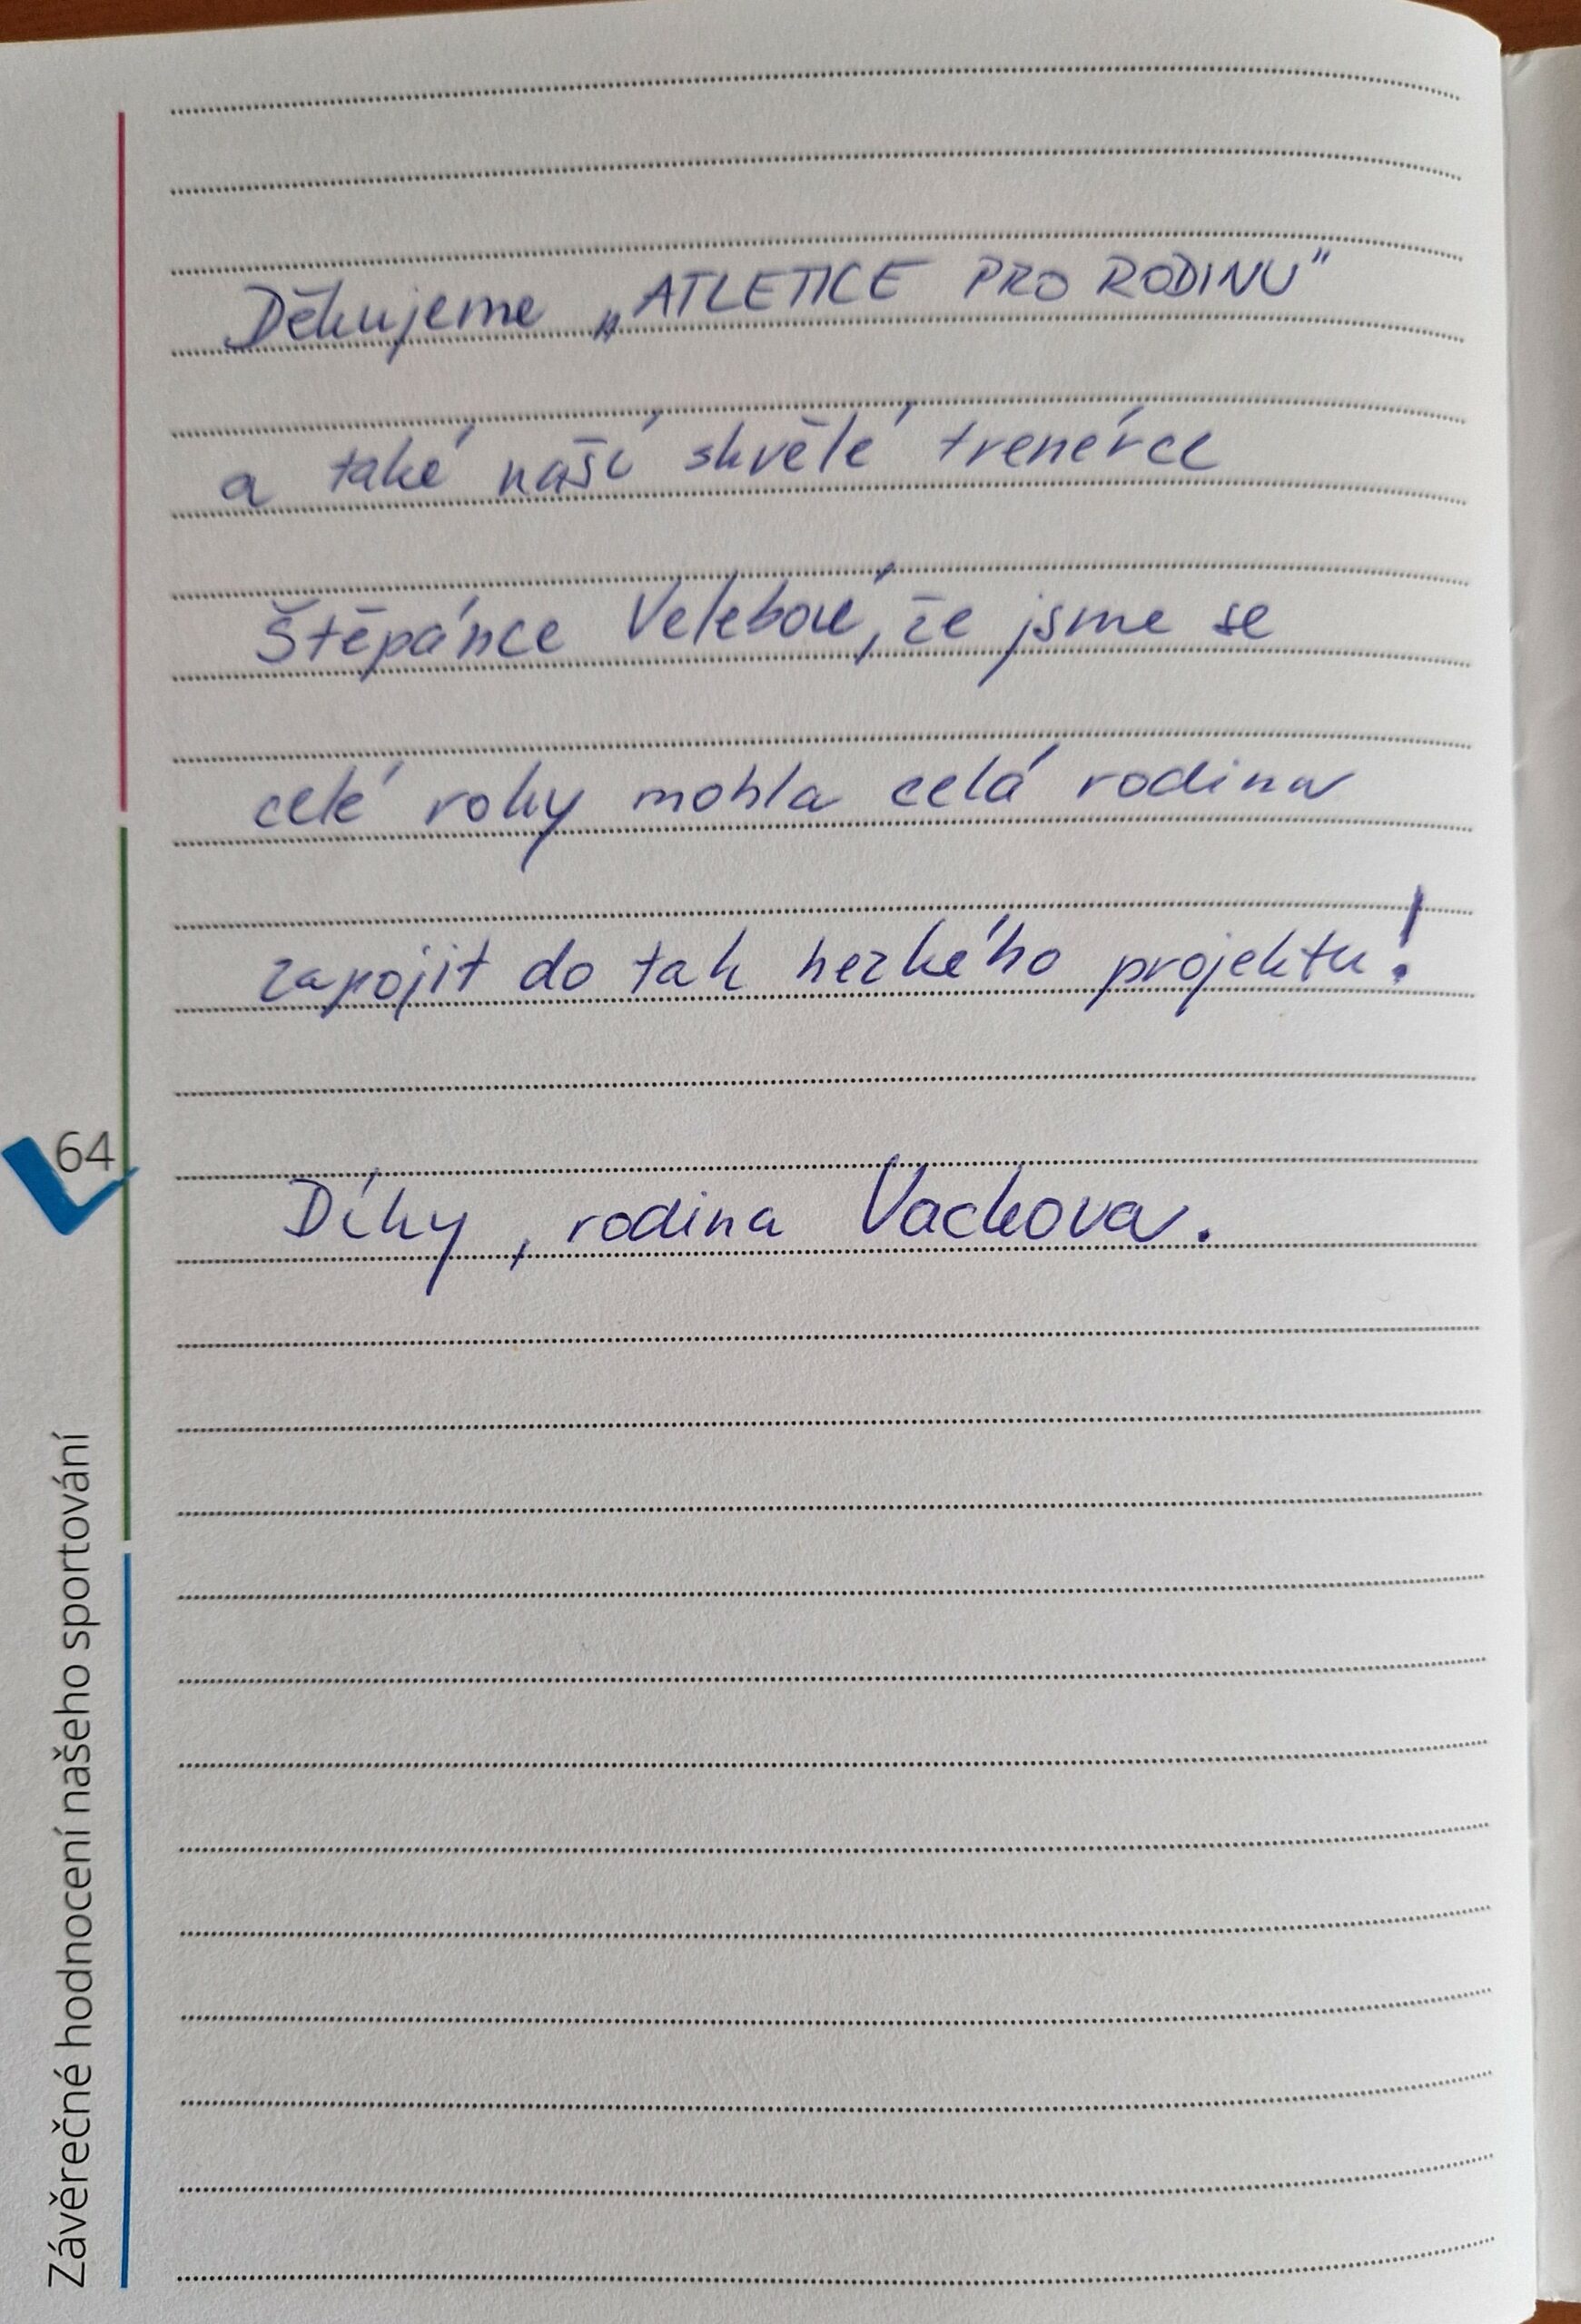 Děkujeme „ATLETICE PRO RODINU"
a také naší skvělé trenérce
Štěpánce Velebové, že jsme se
celé roky mohla celá rodina
zapojit do tak hezkého projektu!
Díky, rodina Vackova.
64
Závěrečné hodnocení našeho sportování